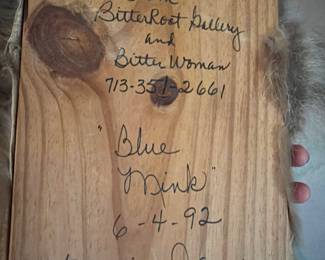 BitterRoot Gallery
and
Bitter Woman
713-351-2661
"Blue
Mink"
6-4-92